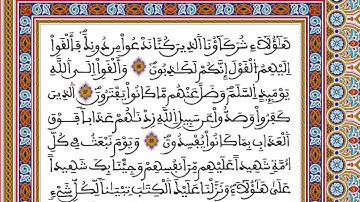 هَٰٓؤُلَآءِ شُرَكَآؤُنَا ٱلذِينَ كُنَّا نَدْعُواْ مِن دُونِكَۖ فَأَلْقَوِاْ
اِلَيْهِمُ ٱلْقَوْلَ إِنَّكُمْ لَكَٰذِبُونَۖ وَأَلْقَوِاْ اِلَى ٱللَّهِ
يَوْمَئِذٍ ٱلسَّلَمَۖ وَضَلَّ عَنْهُم مَّا كَانُواْ يَفْتَرُونَۖ ٱلذِينَ
كَفَرُواْ وَصَدُّواْ عَن سَبِيلِ ٱللَّهِ زِدْنَٰهُمْ عَذَاباً فَوْقَ
ٱلْعَذَابِ بِمَا كَانُواْ يُفْسِدُونَۖ وَيَوْمَ نَبْعَثُ فِے كُلِّ
أُمَّةٖ شَهِيداً عَلَيْهِم مِّنَ اَنفُسِهِمْ وَجِئْنَا بِكَ شَهِيداً
عَلَىٰ هَٰٓؤُلَآءِۖ وَنَزَّلْنَا عَلَيْكَ ٱلْكِتَٰبَ تِبْيَٰناً لِّكُلِّ شَےْءٖ